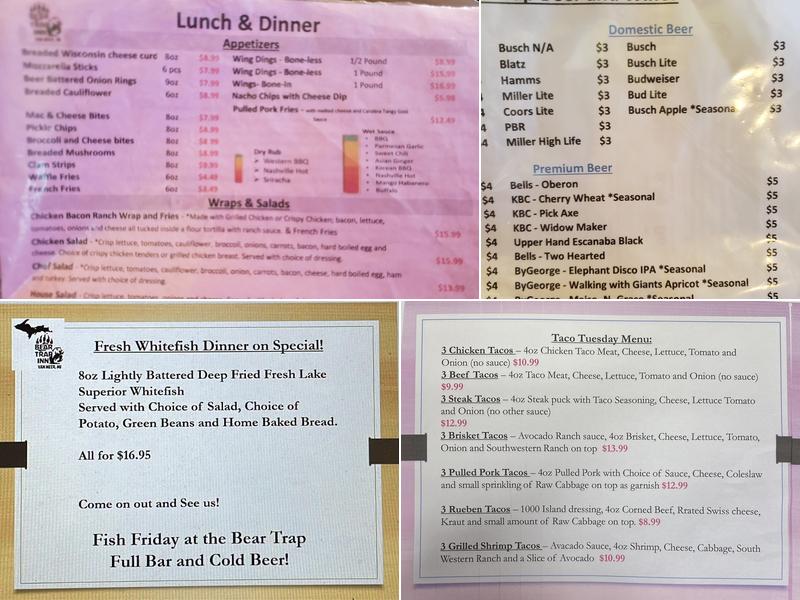 Lunch & Dinner
Appetizers
Breaded Wisconsin cheese curd 8oz $8.99
Mozzarella Sticks 6 pcs $7.99
Beer Battered Onion Rings 9oz $7.99
Breaded Cauliflower 6oz $8.99
Mac & Cheese Bites 8oz $7.99
Pickle Chips 8oz $8.99
Broccoli and Cheese bites 8oz $8.99
Breaded Mushrooms 8oz $8.99
Clam Strips 8oz
Waffle Fries 6oz $4.49
French Fries 6oz $3.49
Wing Dings - Bone-less 1/2 Pound $8.99
Wing Dings - Bone-less 1 Pound $15.99
Wings- Bone-in 1 Pound $16.99
Nacho Chips with Cheese Dip $5.98
Pulled Pork Fries - with melted cheese and Carolina Tangy Gold
Sauce $12.49
Dry Rub
Western BBQ
Nashville Hot
Sriracha
Wet Sauce
BBQ
Parmesan Garlic
Sweet Chili
Asian Ginger
Korean BBQ
Nashville Hot
Mango Habanero
Buffalo
Wraps & Salads
Chicken Bacon Ranch Wrap and Fries - *Made with Grilled Chicken or Crispy Chicken; bacon, lettuce,
tomatoes, onions and cheese all tucked inside a flour tortilla with ranch sauce. & French Fries $15.99
Chicken Salad - *Crisp lettuce, tomatoes, cauliflower, broccoli, onions, carrots, bacon, hard boiled egg and
cheese. Choice of crispy chicken tenders or grilled chicken breast. Served with choice of dressing. $15.99
Chef Salad - *Crisp lettuce, tomatoes, cauliflower, broccoli, onions, carrots, bacon, cheese, hard boiled egg, ham
and turkey. Served with choice of dressing. $13.99
House Salad - Crisp lettuce, tomatoes, onions
Domestic Beer
Busch N/A $3 Busch $3
Blatz $3 Busch Lite $3
Hamms $3 Budweiser $3
Miller Lite $3 Bud Lite $3
Coors Lite $3 Busch Apple *Seasona $3
PBR $3
Miller High Life $3
Premium Beer
$4 Bells - Oberon $5
$4 KBC - Cherry Wheat *Seasonal $5
$4 KBC - Pick Axe $5
$4 KBC - Widow Maker $5
$4 Upper Hand Escanaba Black $5
$4 Bells - Two Hearted $5
$4 ByGeorge - Elephant Disco IPA *Seasonal $5
$4 ByGeorge - Walking with Giants Apricot *Seasonal $5
BEAR
TRAP
INN
VAN MEER, MI
Fresh Whitefish Dinner on Special!
8oz Lightly Battered Deep Fried Fresh Lake
Superior Whitefish
Served with Choice of Salad, Choice of
Potato, Green Beans and Home Baked Bread.
All for $16.95
Come on out and See us!
Fish Friday at the Bear Trap
Full Bar and Cold Beer!
Taco Tuesday Menu:
3 Chicken Tacos – 4oz Chicken Taco Meat, Cheese, Lettuce, Tomato and
Onion (no sauce) $10.99
3 Beef Tacos – 4oz Taco Meat, Cheese, Lettuce, Tomato and Onion (no sauce)
$9.99
3 Steak Tacos – 4oz Steak puck with Taco Seasoning, Cheese, Lettuce Tomato
and Onion (no other sauce)
$12.99
3 Brisket Tacos – Avocado Ranch sauce, 4oz Brisket, Cheese, Lettuce, Tomato,
Onion and Southwestern Ranch on top $13.99
3 Pulled Pork Tacos – 4oz Pulled Pork with Choice of Sauce, Cheese, Coleslaw
and small sprinkling of Raw Cabbage on top as garnish $12.99
3 Rueben Tacos – 1000 Island dressing, 4oz Corned Beef, Rrated Swiss cheese,
Kraut and small amount of Raw Cabbage on top. $8.99
3 Grilled Shrimp Tacos – Avacado Sauce, 4oz Shrimp, Cheese, Cabbage, South
Western Ranch and a Slice of Avocado $10.99